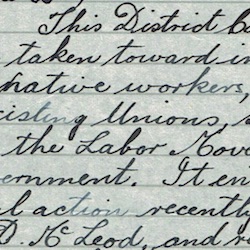 This District Co
taken toward in
native workers,
xisting Unions, s
the Labor Move
ernment. It en
al action recentl
D. McLeod, and